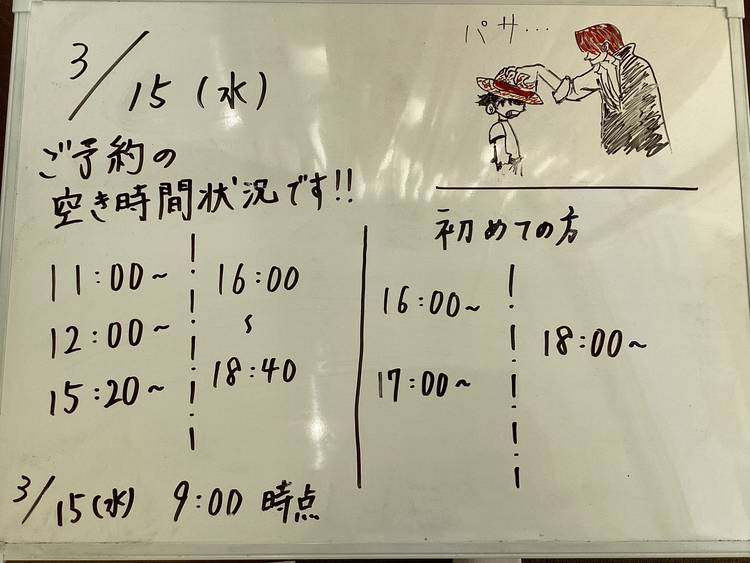 3/15(水)
パサ…
ご予約の
空き時間状況です!!
11:00~
12:00~
15:20~
16:00
~
18:40
初めての方
16:00~
17:00~
18:00~
3/15(水) 9:00 時点